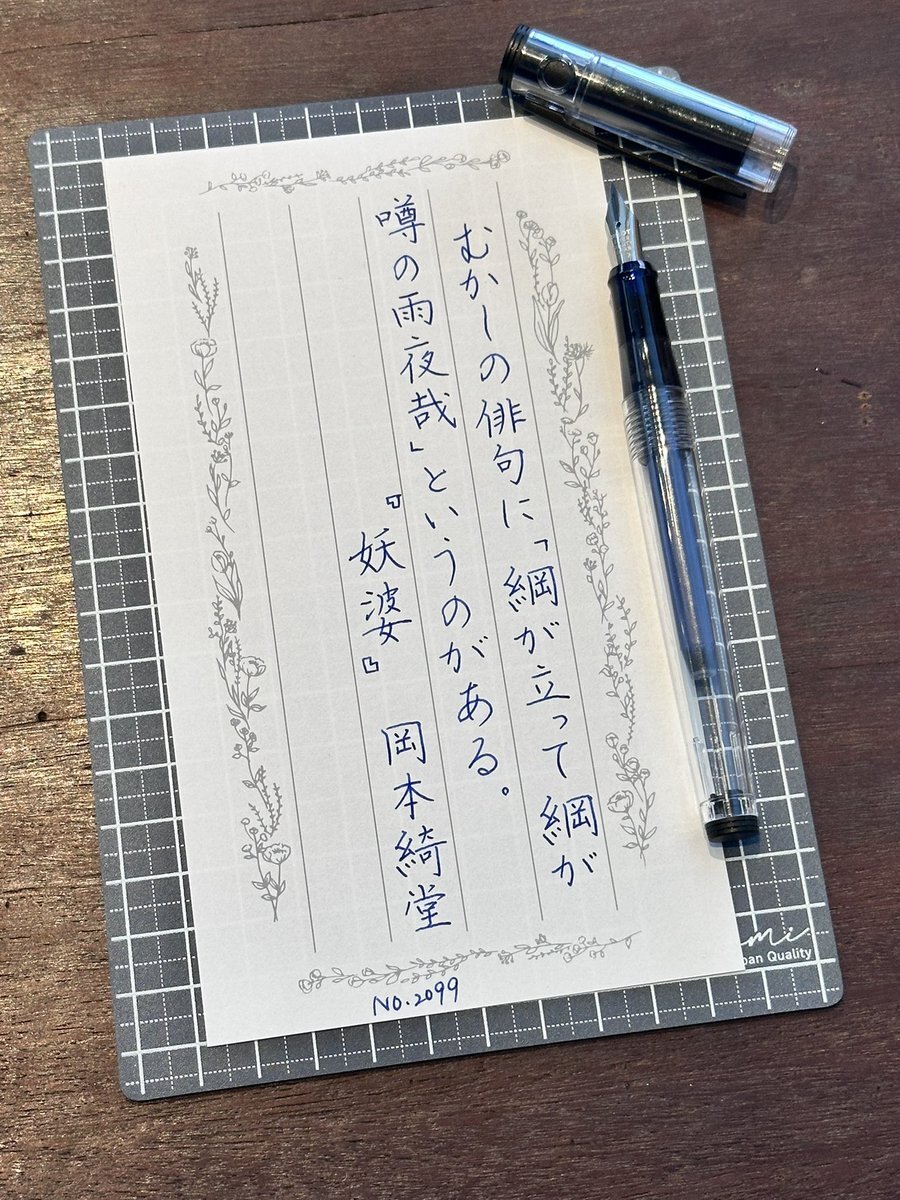 むかしの俳句に「綱が立って綱が
噂の雨夜哉」というのがある。
『妖婆』 岡本綺堂
NO.2099
Quality